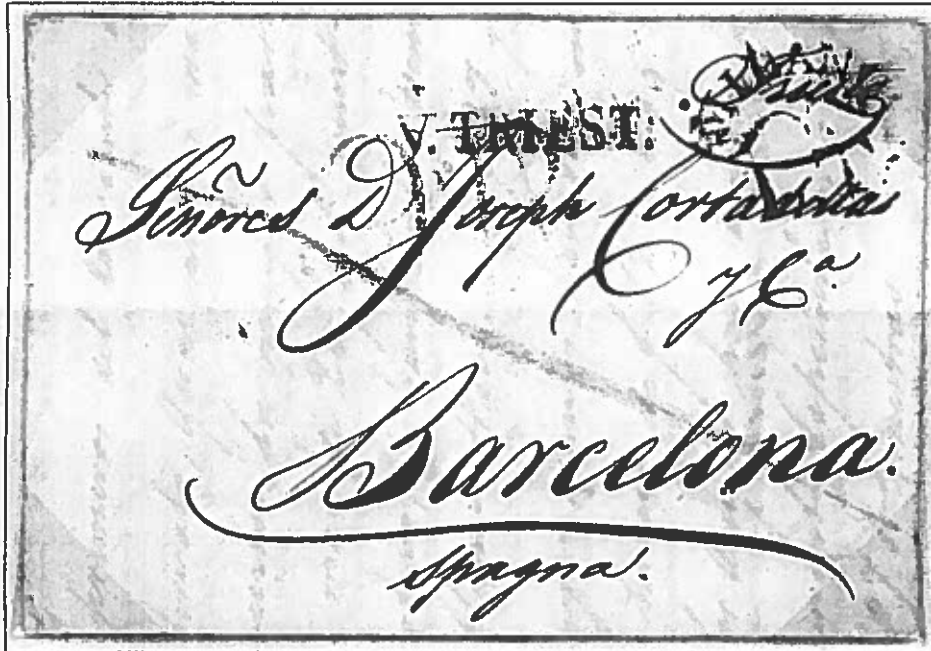 V. TRIEST:
Señores D Joseph Cortadellas
y Cª
Barcelona.
Spagna.